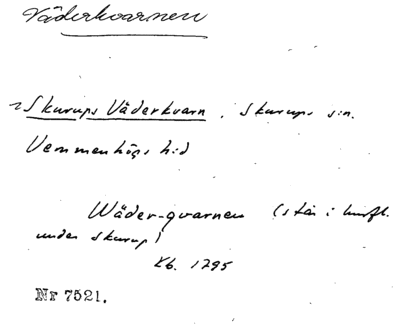 Väderkvarnen
~Skurups Väderkvarn, Skurups s:n.
Vemmenhögs h:d
Wäder-qvarnen (står i husfl.
under Skurup)
Kb. 1795
Nr 7521.